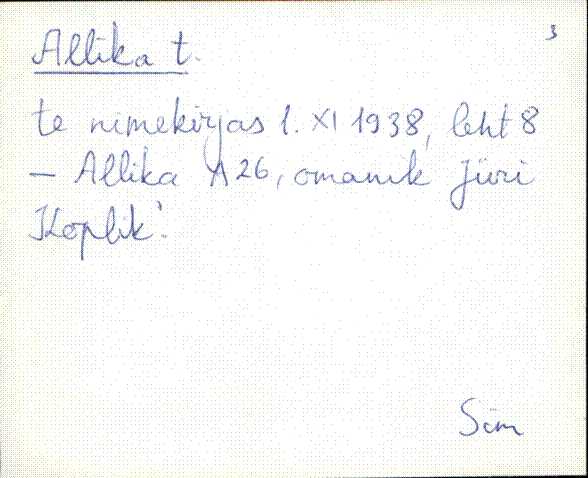 3
Allika t.
te nimekirjas 1. XI 1938, leht 8
– Allika A26, omanik Jüri
Koplik.
Sim